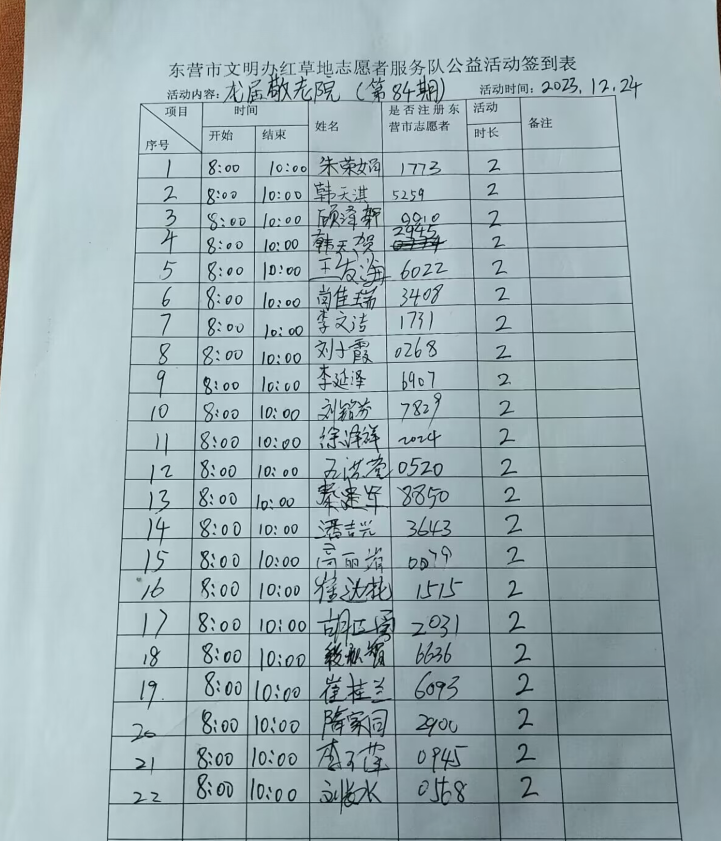 东营市文明办红草地志愿者服务队公益活动签到表
活动内容：龙居敬老院（第84期） 活动时间：2023.12.24
项目 时间 姓名 是否注册东 活动 备注
序号 开始 结束 营市志愿者 时长
1 8:00 10:00 朱荣娟 1773 2
2 8:00 10:00 韩天淇 5259 2
3 8:00 10:00 顾泽 9910 2
4 8:00 10:00 韩天贺 2945 2
5 8:00 10:00 王友海 6022 2
6 8:00 10:00 尚佳瑞 3408 2
7 8:00 10:00 李文洁 1731 2
8 8:00 10:00 刘小霞 0268 2
9 8:00 10:00 李延泽 6907 2
10 8:00 10:00 刘 芬 7829 2
11 8:00 10:00 徐泽祥 2024 2
12 8:00 10:00 0520 2
13 8:00 10:00 秦建军 8850 2
14 8:00 10:00 潘吉兴 3643 2
15 8:00 10:00 高丽 0079 2
16 8:00 10:00 崔 1515 2
17 8:00 10:00 胡 2031 2
18 8:00 10:00 6636 2
19 8:00 10:00 崔桂兰 6093 2
20 8:00 10:00 隋家同 2900 2
21 8:00 10:00 李 莲 0945 2
22 8:00 10:00 刘 水 0568 2